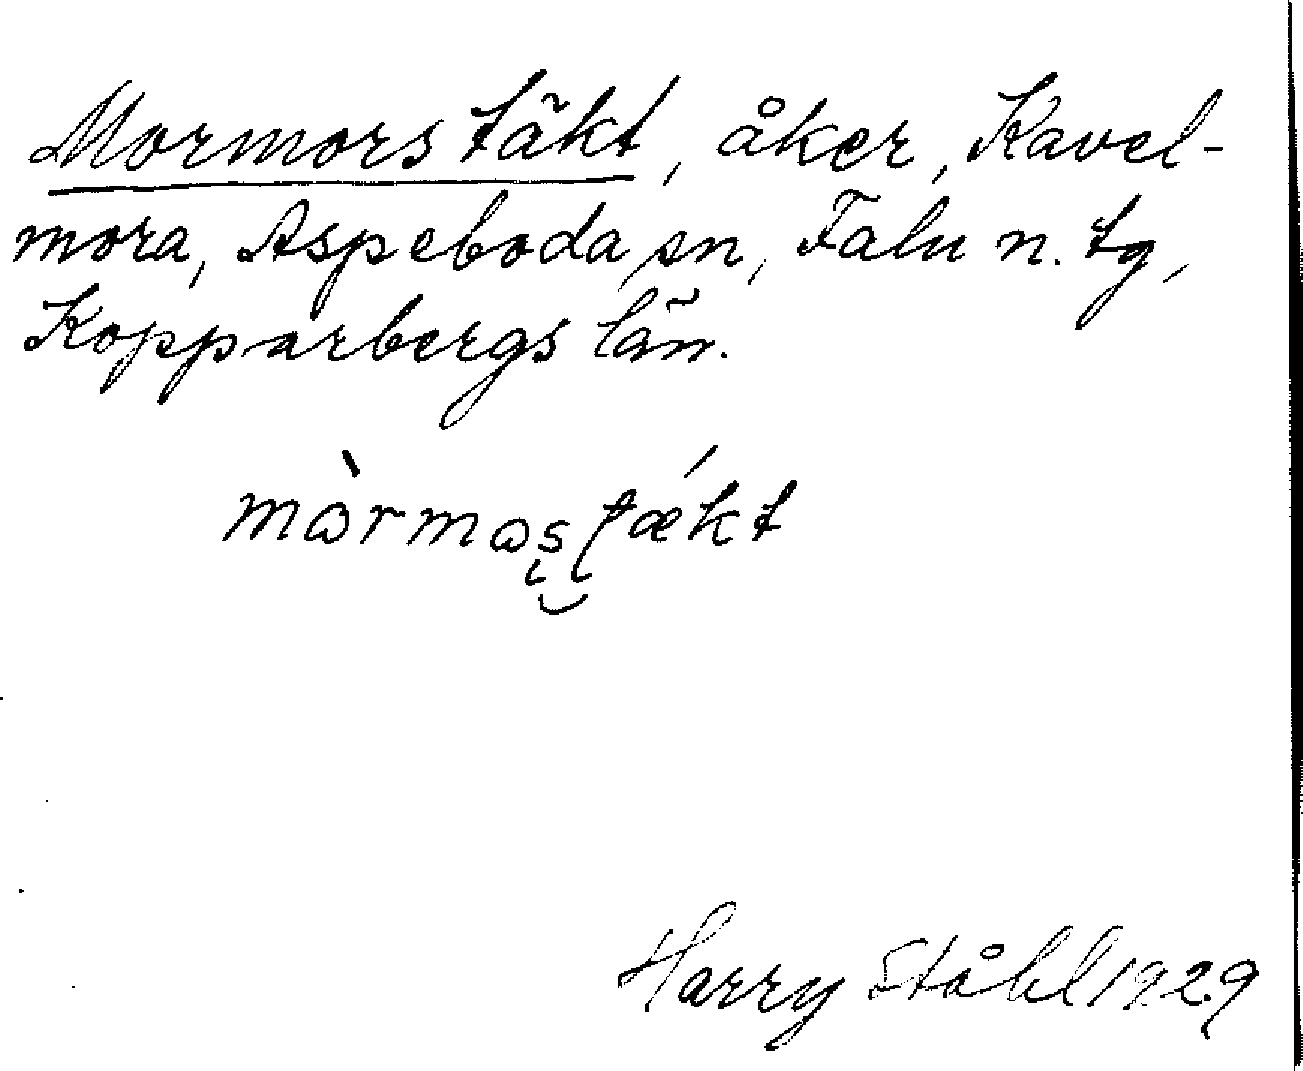 Mormors täkt, åker, Kavel-
mora, Aspeboda sn, Falu n. tg,
Kopparbergs län.
mòrmos̨ ʈækt
Harry Ståhl 1929